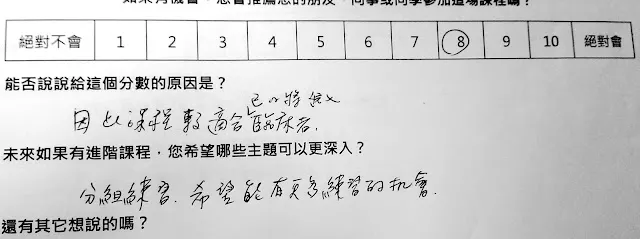 如果有機會，您會推薦您的朋友、同事或同學參加這場課程嗎？
絕對不會 1 2 3 4 5 6 7 8 9 10 絕對會
能否說說給這個分數的原因是？
已/將進入
因此課程較適合臨床者.
未來如果有進階課程，您希望哪些主題可以更深入？
分組練習. 希望能有更多練習的机會.
還有其它想說的嗎？